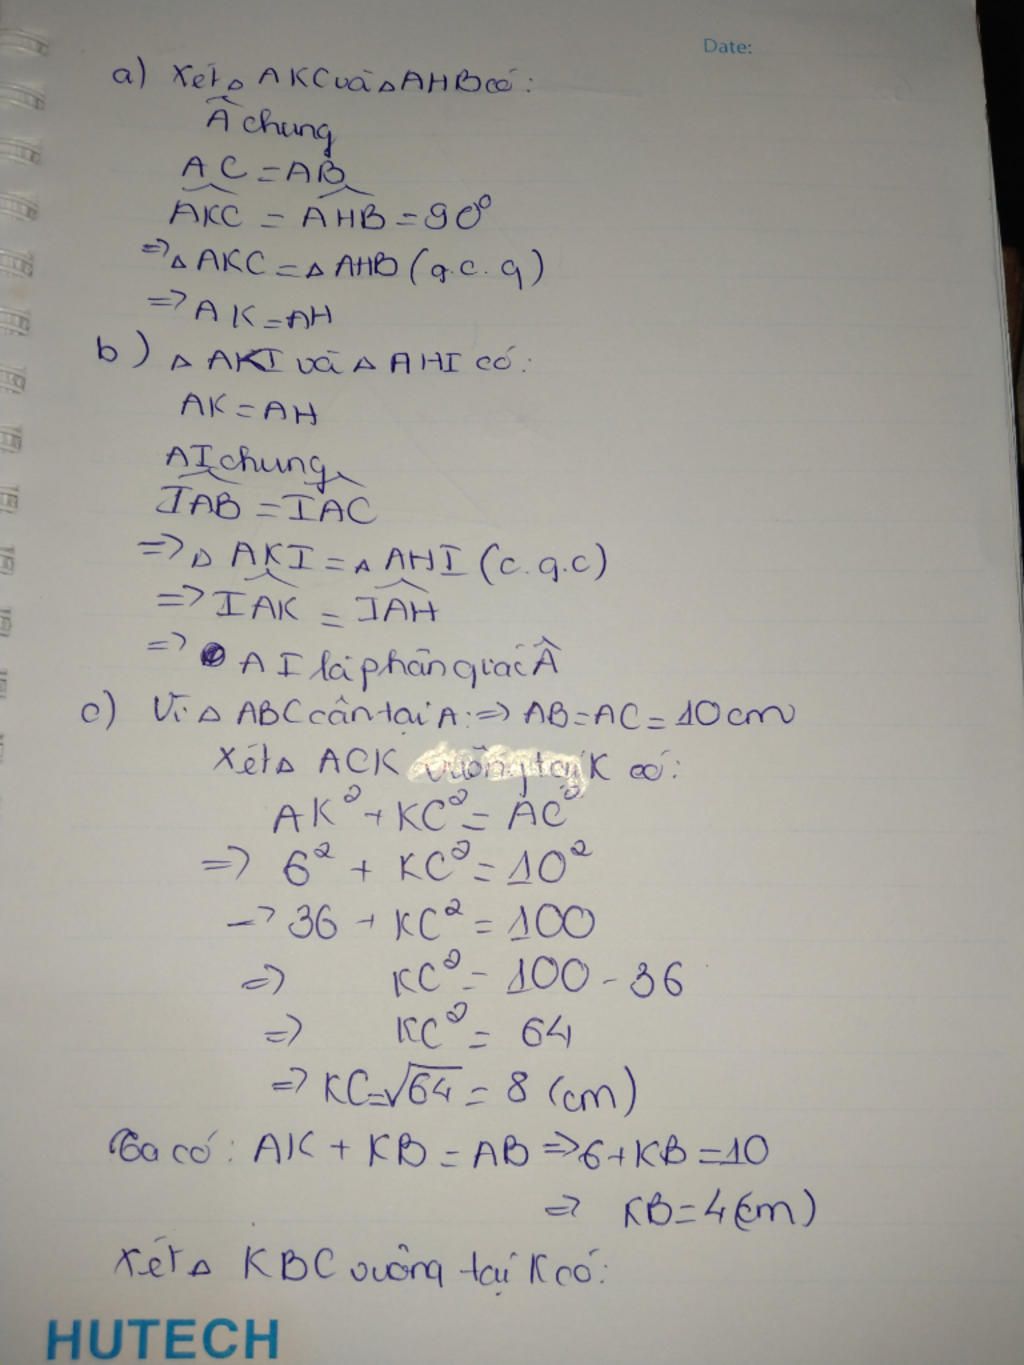 Date:
a) Xét △ AKC và △ AHB có:
Â chung
AC = AB
$\widehat{AKC}$ = $\widehat{AHB}$ = 90°
=> △ AKC = △ AHB (g.c.g)
=> AK = AH
b) △ AKI và △ AHI có:
AK = AH
AI chung
$\widehat{IAB}$ = $\widehat{IAC}$
=> △ AKI = △ AHI (c.g.c)
=> $\widehat{IAK}$ = $\widehat{IAH}$
=> AI là phân giác Â
c) Vì △ ABC cân tại A => AB = AC = 10cm
Xét △ ACK vuông tại K có:
AK² + KC² = AC²
=> 6² + KC² = 10²
-> 36 + KC² = 100
=> KC² = 100 - 36
=> KC² = 64
=> KC = √64 = 8 (cm)
Ta có: AK + KB = AB => 6 + KB = 10
=> KB = 4(cm)
Xét △ KBC vuông tại K có:
HUTECH